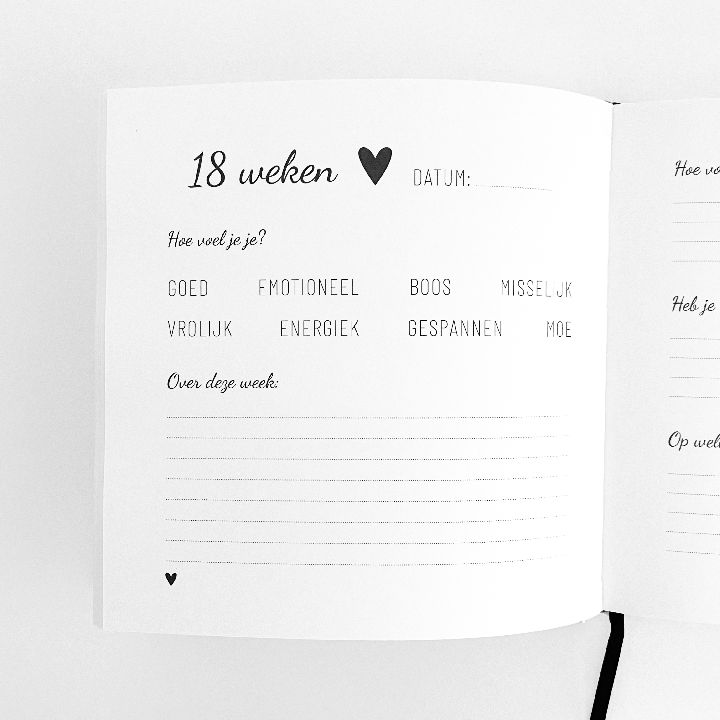 18 weken DATUM:
Hoe voel je je?
GOED EMOTIONEEL BOOS MISSELIJK
VROLIJK ENERGIEK GESPANNEN MOE
Over deze week:
Hoe
Heb je
Op